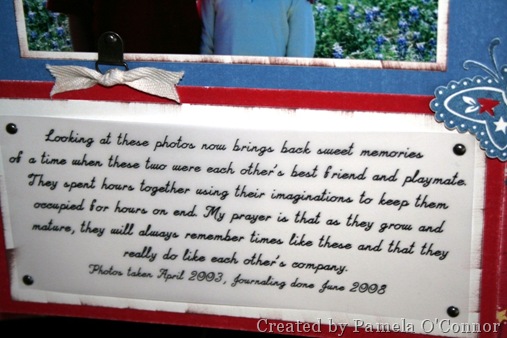 Looking at these photos now brings back sweet memories
of a time when these two were each other's best friend and playmate.
They spent hours together using their imaginations to keep them
occupied for hours on end. My prayer is that as they grow and
mature, they will always remember times like these and that they
really do like each other's company.
Photos taken April 2003, Journaling done June 2008
Created by Pamela O'Connor